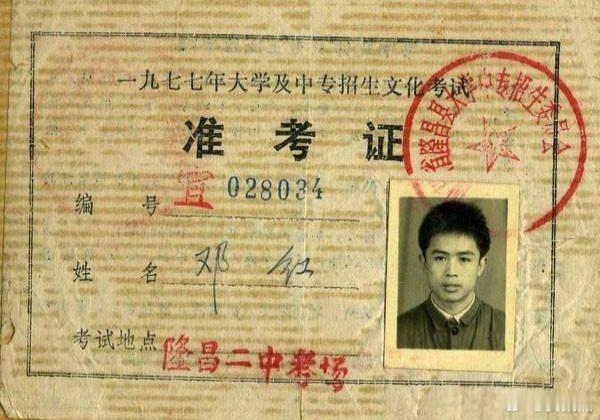 一九七七年大学及中专招生文化考试
省隆昌县大学中专招生委员会
准考证
编号 宜 028034
姓名 邓红
考试地点 隆昌二中考场